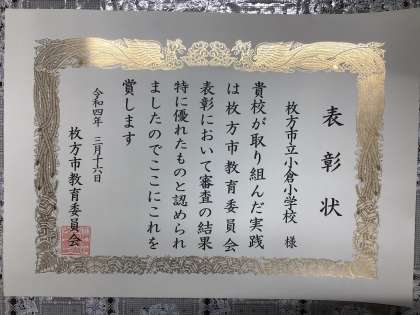 表彰状
枚方市立小倉小学校 様
貴校が取り組んだ実践
は枚方市教育委員会
表彰において審査の結果
特に優れたものと認められ
ましたのでここにこれを
賞します
令和四年 三月十六日
枚方市教育委員会